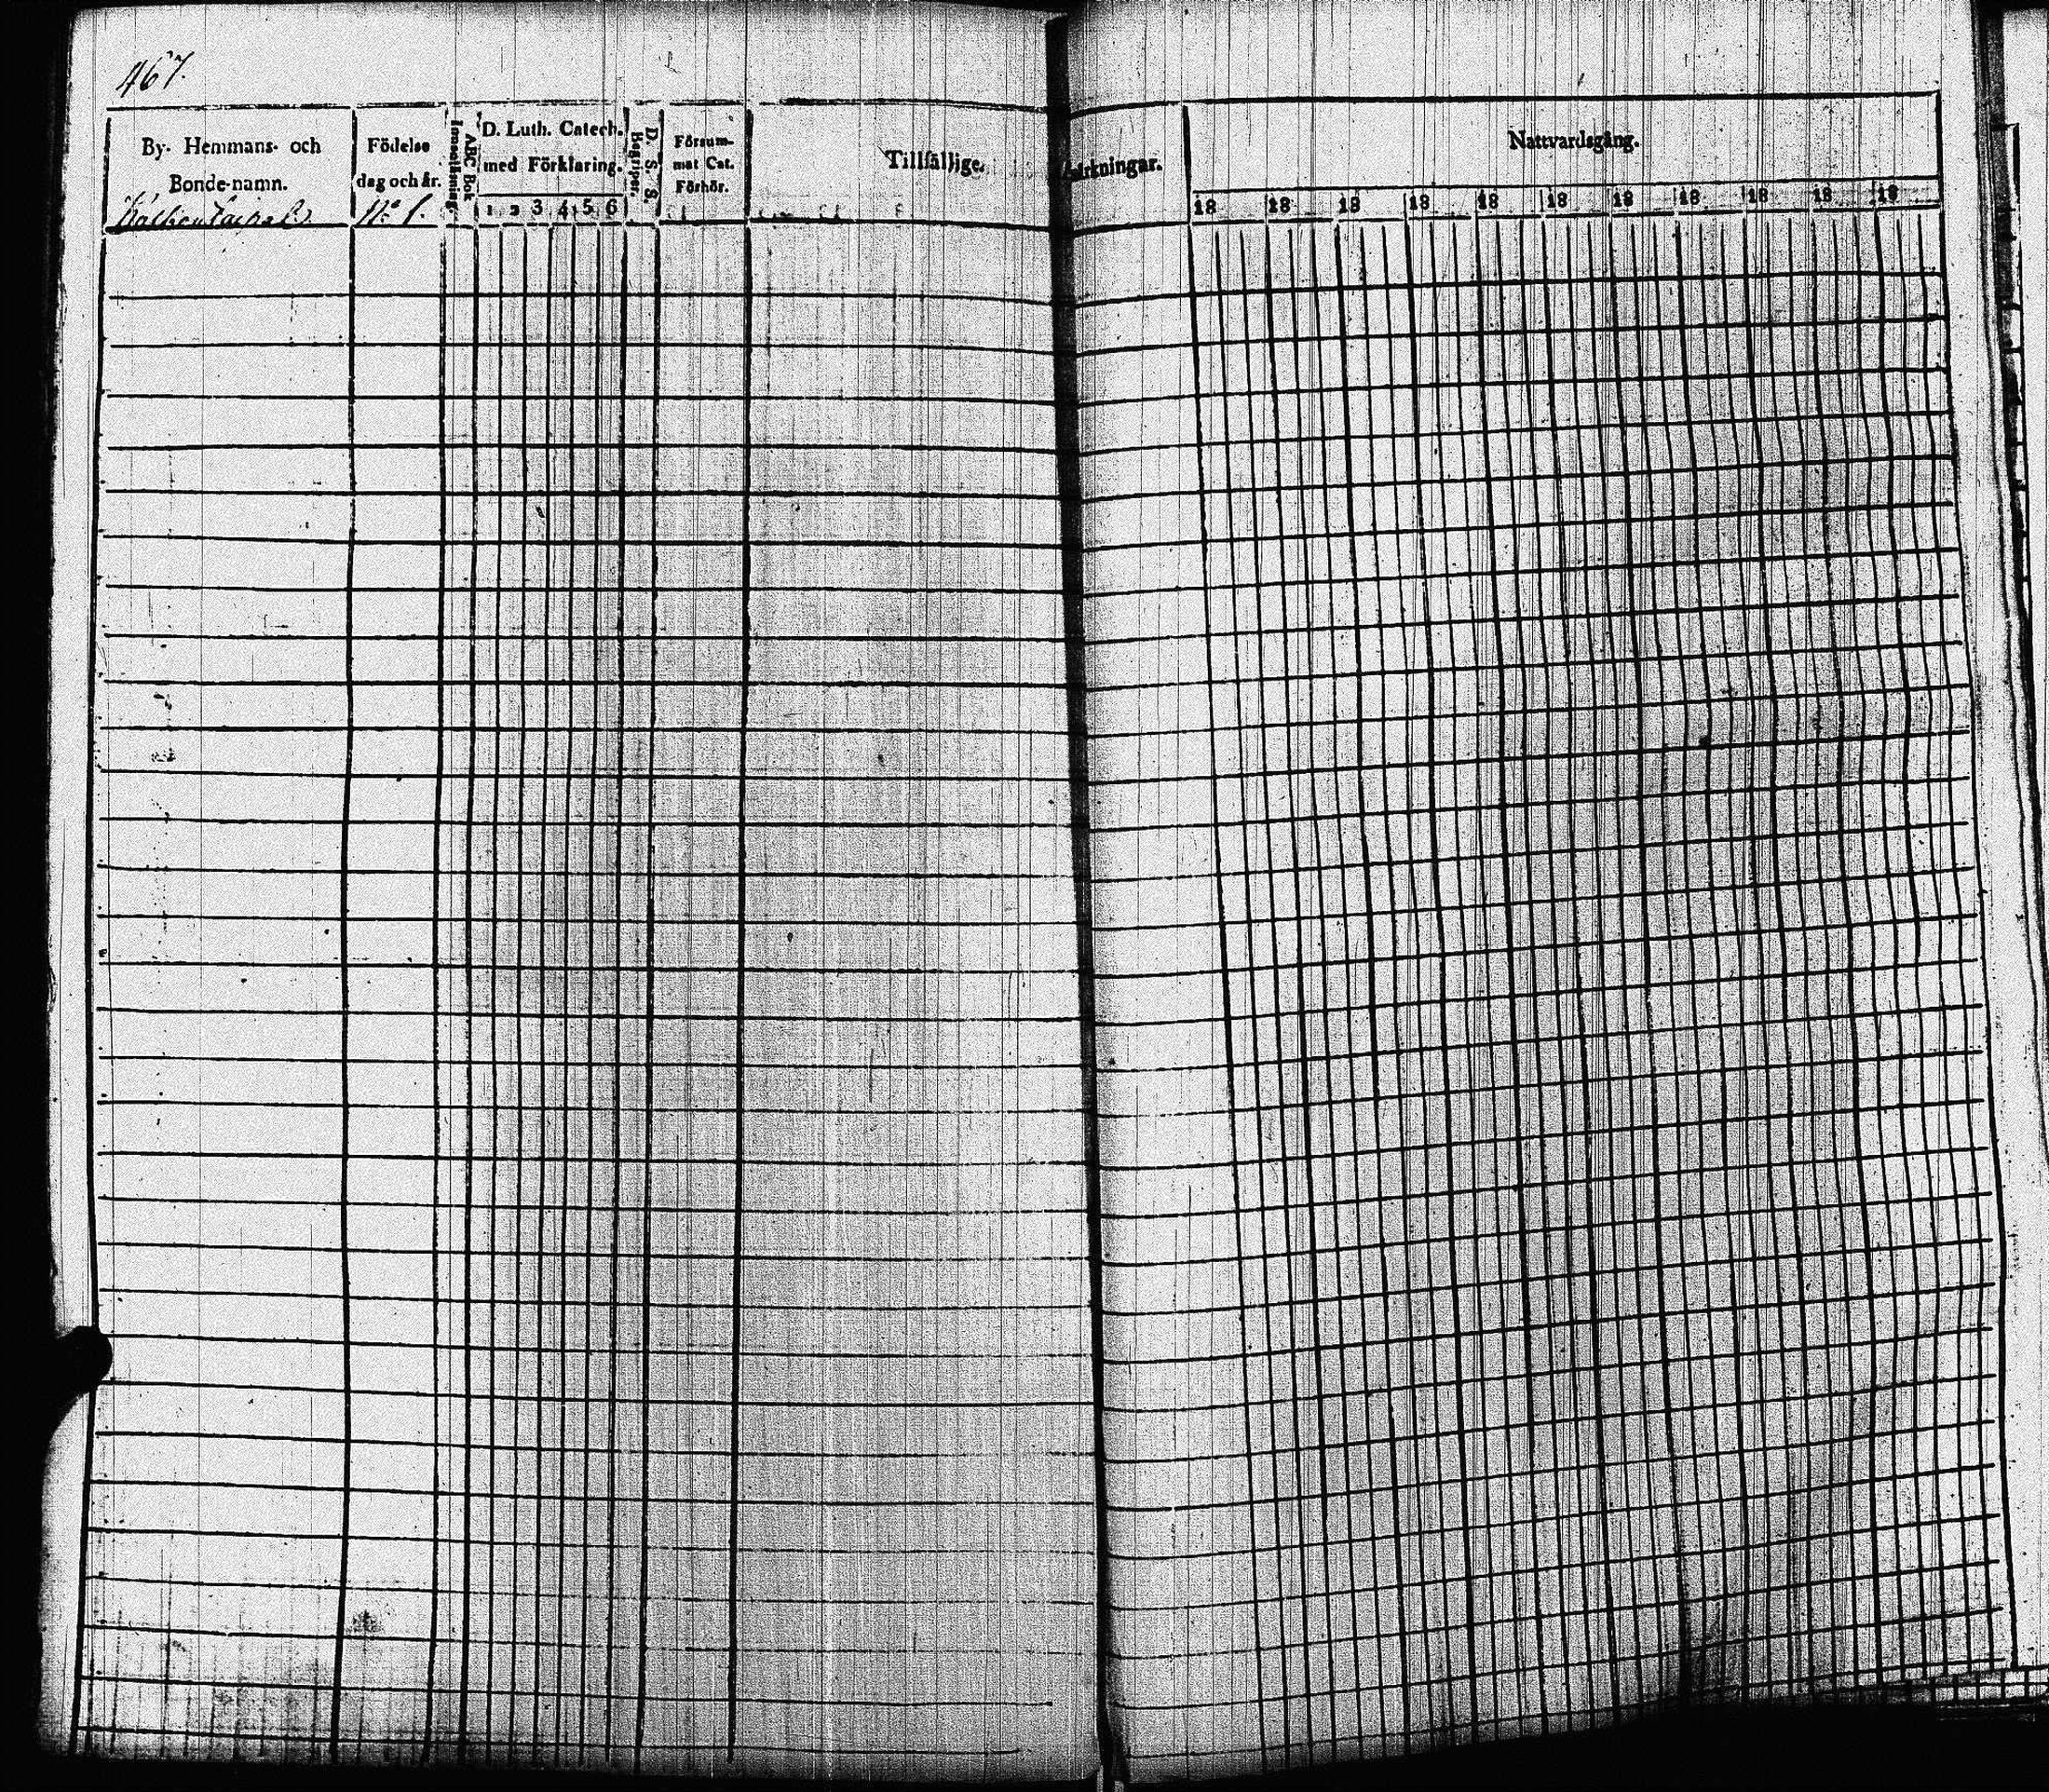 467.
By- Hemmans- och
Bonde-namn.
Födelse
dag och år.
No 1.
ABC Bok
Innanläsning.
D. Luth. Catech.
med Förklaring.
1 2 3 4 5 6
D. S. S.
Försum-
mat Cat.
Förhör.
Tillfällige
Nattvardsgång.
18 18 18 18 18 18 18 18 18 18 18